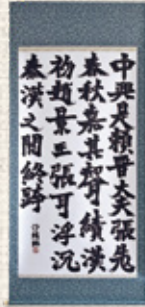 中興是賴晉大夫張老
春秋嘉其聲績漢
初趙景王張耳浮沉
秦漢之間終跨